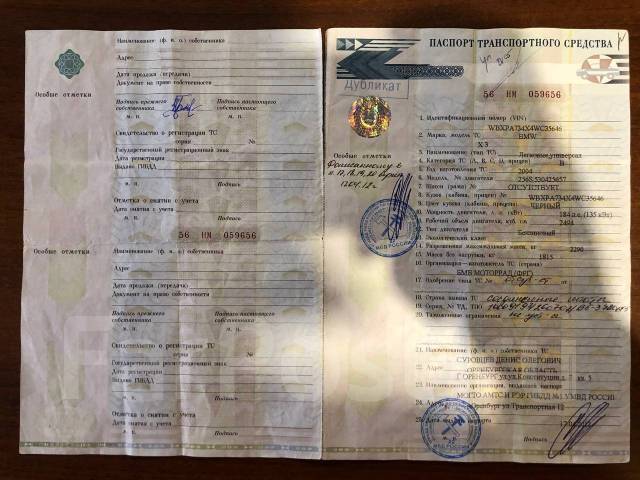 Наименование (ф. и. о.) собственника
Адрес
Дата продажи (передачи)
Документ на право собственности
Особые отметки
Подпись прежнего собственника
Подпись настоящего собственника
м. п.
м. п.
Свидетельство о регистрации ТС
серия №
Государственный регистрационный знак
Дата регистрации
Выдано ГИБДД
м. п.
Подпись
Отметка о снятии с учета
Дата снятия с учета
м. п.
Подпись
56 НМ 059656
Особые отметки
Наименование (ф. и. о.) собственника
Адрес
Дата продажи (передачи)
Документ на право собственности
Подпись прежнего собственника
Подпись настоящего собственника
м. п.
м. п.
Свидетельство о регистрации ТС
серия №
Государственный регистрационный знак
Дата регистрации
Выдано ГИБДД
м. п.
Подпись
Отметка о снятии с учета
Дата снятия с учета
м. п.
Подпись
ПАСПОРТ ТРАНСПОРТНОГО СРЕДСТВА
Дубликат
56 НМ 059656
Особые отметки
1. Идентификационный номер (VIN)
WBXPA734X4WC35646
2. Марка, модель ТС BMW
X3
3. Наименование (тип ТС) Легковые универсал
4. Категория ТС (А, В, С, D, прицеп) B
5. Год изготовления ТС 2004
6. Модель, № двигателя 256S 530423657
7. Шасси (рама) № ОТСУТСТВУЕТ
8. Кузов (кабина, прицеп) № WBXPA734X4WC35646
9. Цвет кузова (кабины, прицепа) ЧЕРНЫЙ
10. Мощность двигателя, л. с. (кВт) 184 л.с. (135 кВт)
11. Рабочий объем двигателя, куб. см 2494
12. Тип двигателя Бензиновый
13. Экологический класс
14. Разрешенная максимальная масса, кг 2290
15. Масса без нагрузки, кг 1815
16. Организация-изготовитель ТС (страна)
БМВ МОТОРРАД (ФРГ)
17. Одобрение типа ТС №
18. Страна вывоза ТС
19. Серия, № ТД, ТПО
20. Таможенные ограничения
21. Наименование (ф. и. о.) собственника ТС
СУРОВЦЕВ ДЕНИС ОЛЕГОВИЧ
22. Адрес ОРЕНБУРГСКАЯ ОБЛАСТЬ
Г ОРЕНБУРГ ул.ул.Конституции д. 7 кв. 5
23. Наименование организации, выдавшей паспорт
МОГТО АМТС И РЭР ГИБДД №1 УМВД РОССИИ
24. Адрес г.Оренбург ул.Транспортная 12
25. Дата выдачи паспорта
м. п.
Подпись